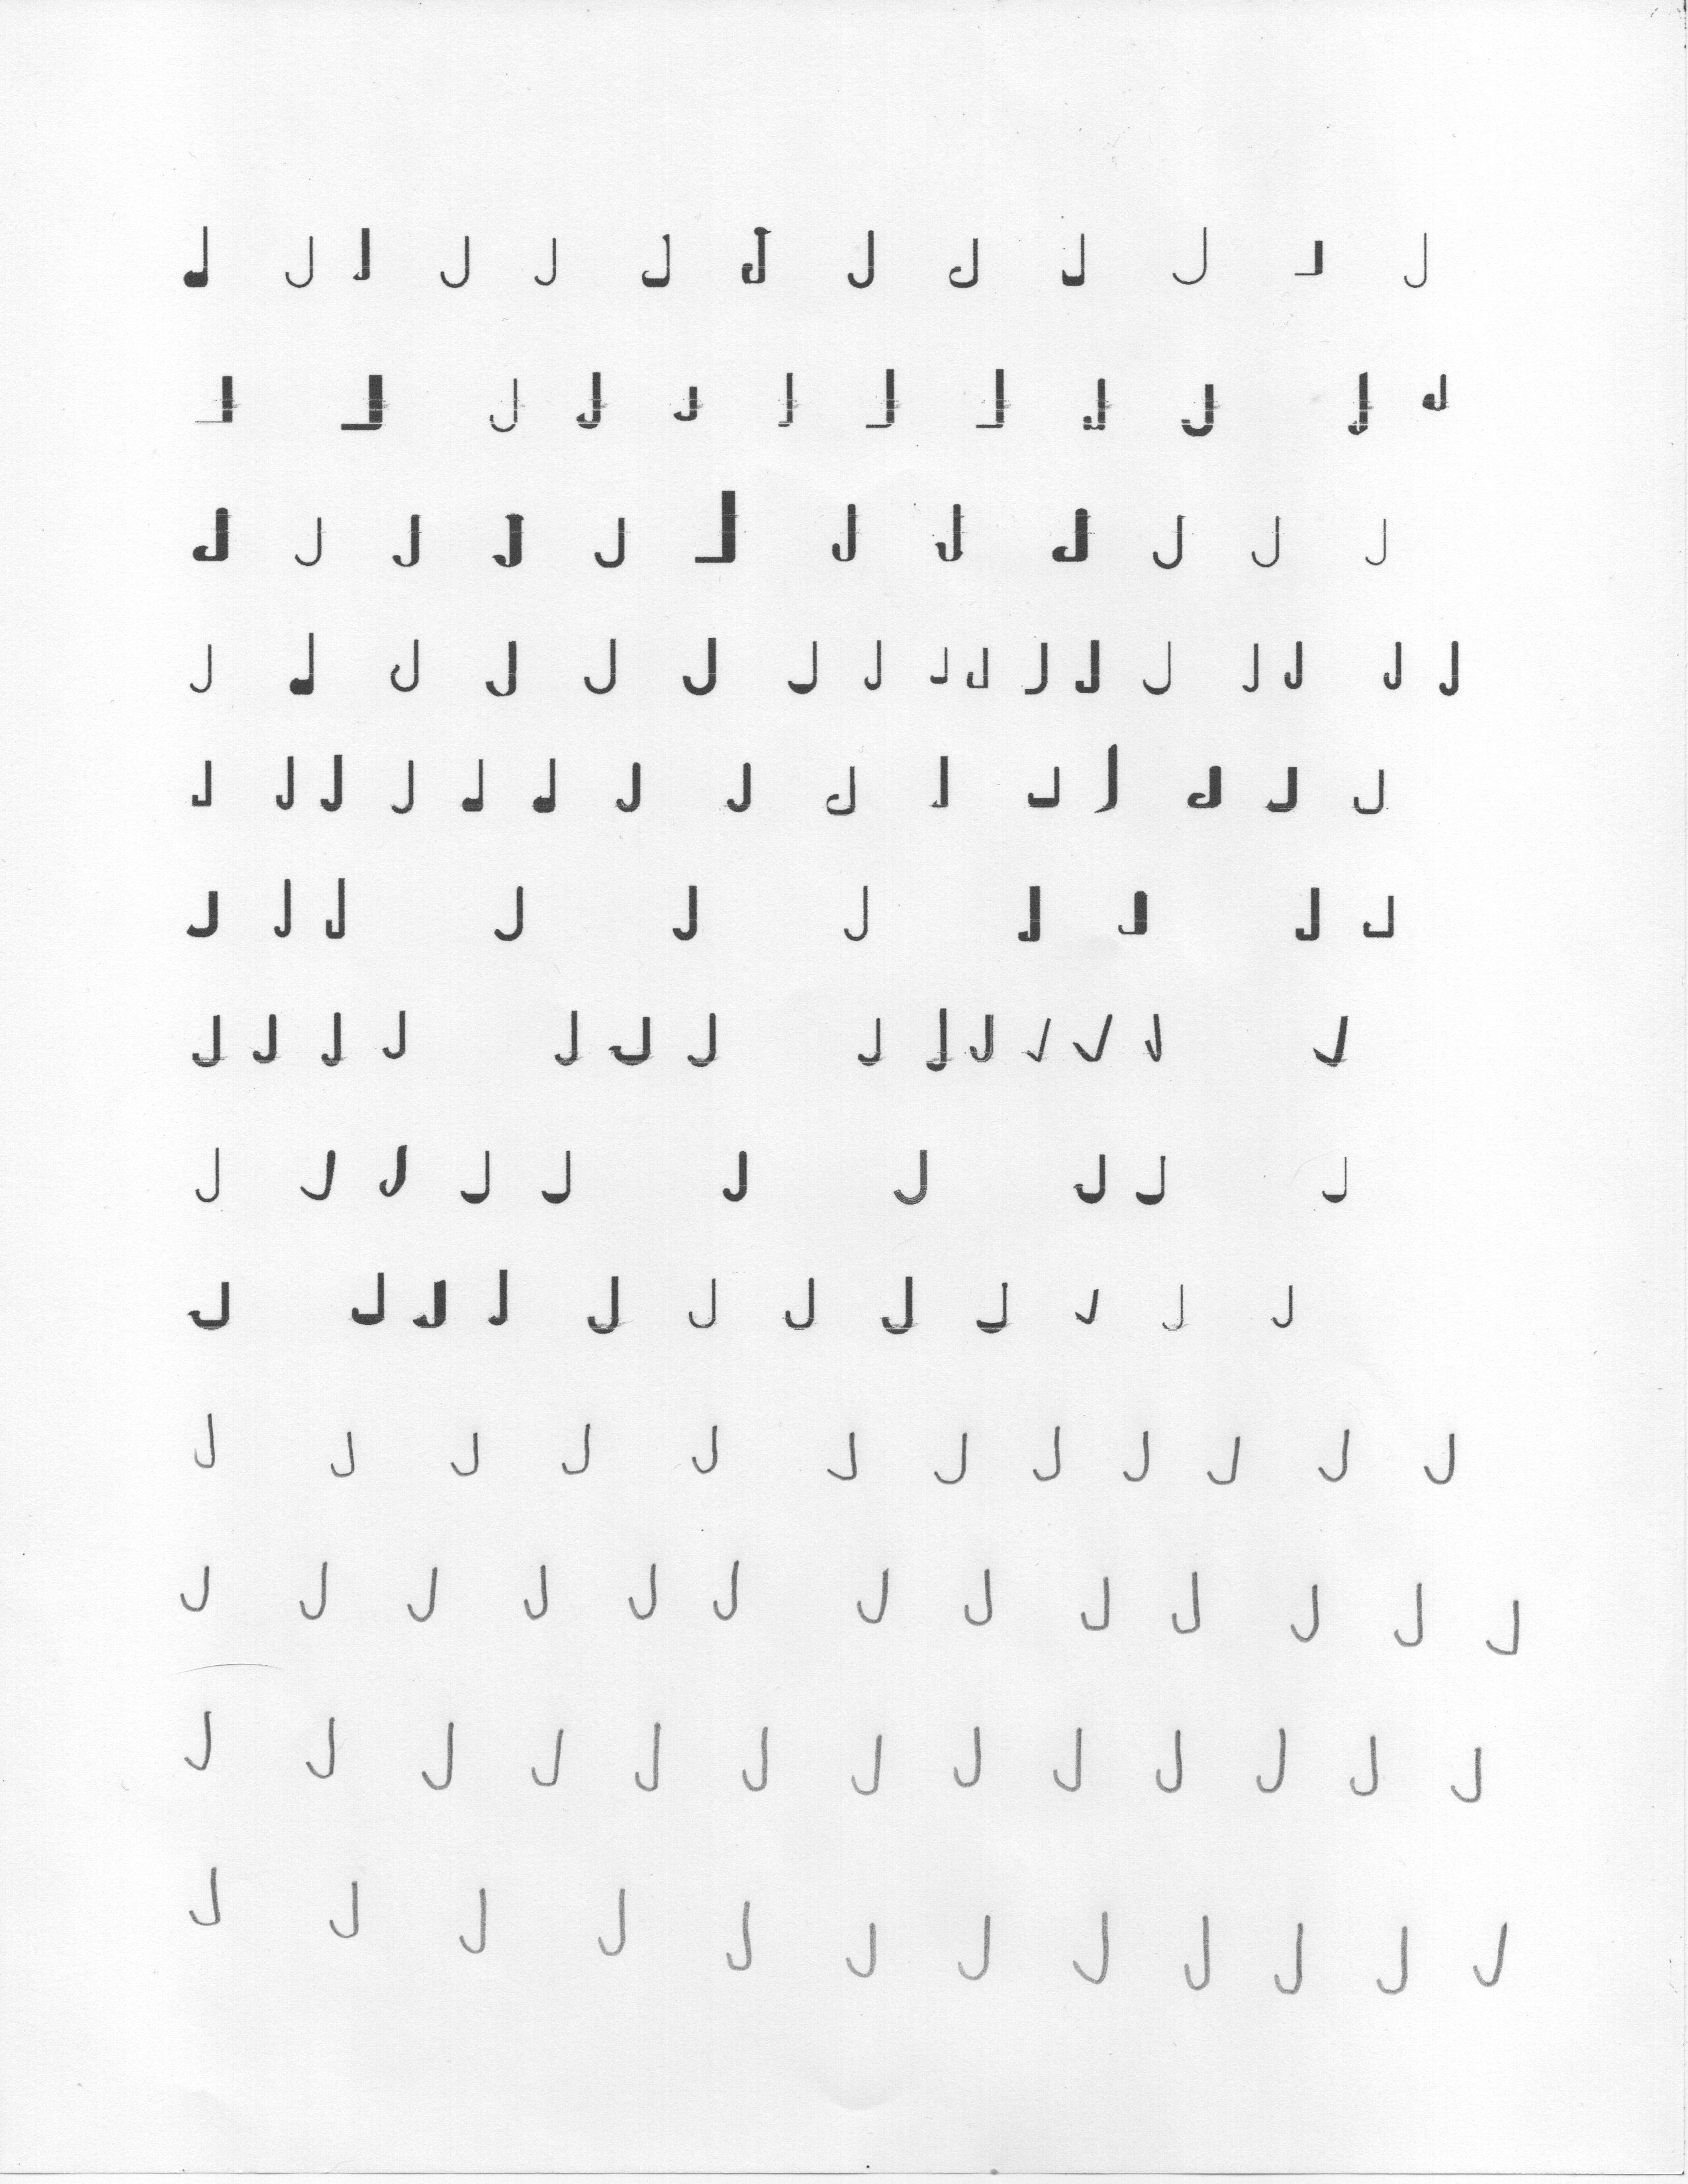 J J J J J J J J J J J J J
J J J J J J J J J J J J
J J J J J J J J J J J J
J J J J J J J J J J J J J J J J J
J J J J J J J J J J J J J J J
J J J J J J J J J J
J J J J J J J J J J J J J J
J J J J J J J J J J
J J J J J J J J J J J J
J J J J J J J J J J J J
J J J J J J J J J J J J J
J J J J J J J J J J J J J
J J J J J J J J J J J J